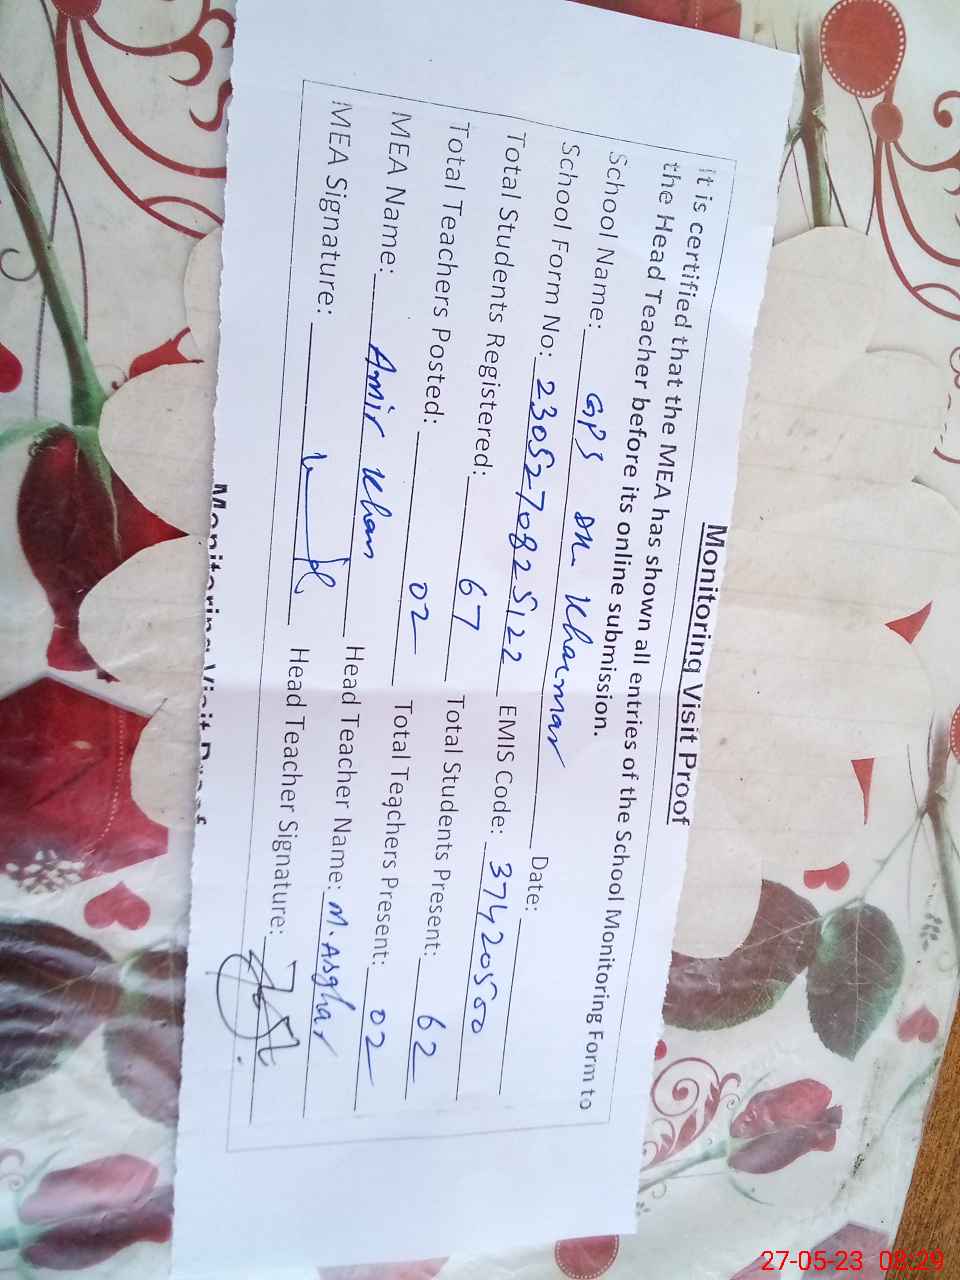 Monitoring Visit Proof
it is certified that the MEA has shown all entries of the School Monitoring Form to
the Head Teacher before its online submission.
School Name: GPS DK- Khaimar Date:
School Form No: 2305270825122 EMIS Code: 37420500
Total Students Registered: 67 Total Students Present: 62
Total Teachers Posted: 02 Total Teachers Present: 02
MEA Name: Amir Khan Head Teacher Name: M. Asghar
MEA Signature: Head Teacher Signature:
Monitoring Visit Proof
27-05-23 08:29